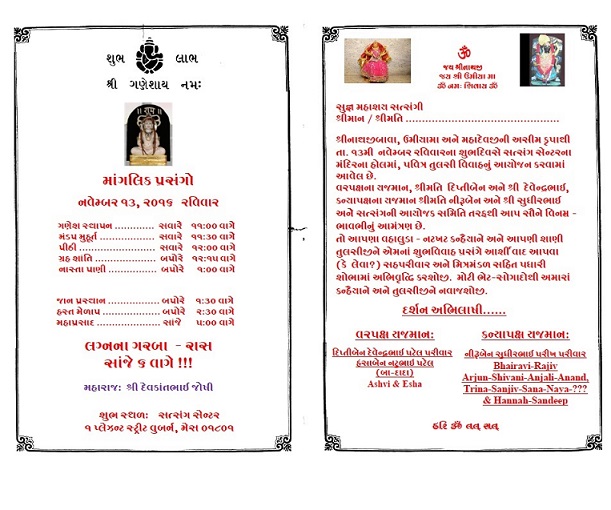 શુભ લાભ
શ્રી ગણેશાય નમઃ
માંગલિક પ્રસંગો
નવેમ્બર ૧૩, ૨૦૧૬ રવિવાર
ગણેશ સ્થાપન .............. સવારે ૧૧:૦૦ વાગે
મંડપ મુહૂર્ત ................. સવારે ૧૧:૩૦ વાગે
પીઠી .......................... સવારે ૧૨:૦૦ વાગે
ગ્રહ શાંતિ ................... બપોરે ૧૨:૧૫ વાગે
નાસ્તા પાણી ................ બપોરે ૧:૦૦ વાગે
જાન પ્રસ્થાન ................ બપોરે ૧:૩૦ વાગે
હસ્ત મેળાપ ................ બપોરે ૨:૩૦ વાગે
મહાપ્રસાદ ................... સાંજે ૫:૦૦ વાગે
લગ્નના ગરબા - રાસ
સાંજે ૬ વાગે !!!
મહારાજ: શ્રી દેવકાંતભાઈ જોષી
શુભ સ્થળ: સત્સંગ સેન્ટર
૧ પ્લેઝન્ટ સ્ટ્રીટ વુબર્ન, મેસ ૦૧૮૦૧
ૐ
જય શ્રીનાથજી
જય શ્રી ઉમિયા મા
ૐ નમઃ શિવાય ૐ
સુજ્ઞ મહાશય સત્સંગી
શ્રીમાન / શ્રીમતિ ..............................................
શ્રીનાથજીબાવા, ઉમીયામા અને મહાદેવજીની અસીમ કૃપાથી
તા. ૧૩મી નવેમ્બર રવિવારના શુભદિવસે સત્સંગ સેન્ટરના
મંદિરના હોલમાં, પવિત્ર તુલસી વિવાહનું આયોજન કરવામાં
આવેલ છે.
વરપક્ષના યજમાન, શ્રીમતિ દિપ્તીબેન અને શ્રી દેવેન્દ્રભાઈ,
કન્યાપક્ષના યજમાન શ્રીમતિ નીરૂબેન અને શ્રી સુધીરભાઈ
અને સત્સંગની આયોજક સમિતિ તરફથી આપ સૌને વિનમ્ર -
ભાવભીનું આમંત્રણ છે.
તો આપણા વહાલુડા - નટખટ કન્હૈયાને અને આપણી શાણી
તુલસીજીને એમનાં શુભવિવાહ પ્રસંગે આર્શીવાદ આપવા
(કે લેવા?) સહપરીવાર અને મિત્રમંડળ સહિત પધારી
શોભામાં અભિવૃદ્ધિ કરશોજી. મોટી ભેટ-સોગાદોથી અમારાં
કન્હૈયાને અને તુલસીજીને નવાજશોજી.
દર્શન અભિલાષી......
વરપક્ષ યજમાન: કન્યાપક્ષ યજમાન:
દિપ્તીબેન દેવેન્દ્રભાઈ પટેલ પરીવાર નીરૂબેન સુધીરભાઈ પરીખ પરીવાર
હસાબેન નટુભાઈ પટેલ Bhairavi-Rajiv
(બા-દાદા) Arjun-Shivani-Anjali-Anand,
Ashvi & Esha Trina-Sanjiv-Sana-Naya-???
& Hannah-Sandeep
હરિ ૐ તત્ સત્